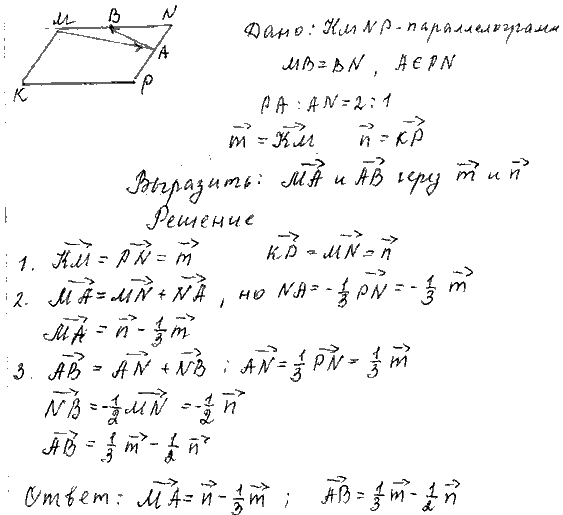 M B N
A
K P
Дано: KMNP - параллелограмм
MB = BN, A∈PN
PA : AN = 2 : 1
m⃗ = KM⃗ n⃗ = KP⃗
Выразить: MA⃗ и AB⃗ через m⃗ и n⃗
Решение
1. KM⃗ = PN⃗ = m⃗ KP⃗ = MN⃗ = n⃗
2. MA⃗ = MN⃗ + NA⃗, но NA = -1/3 PN⃗ = -1/3 m⃗
MA⃗ = n⃗ - 1/3 m⃗
3. AB⃗ = AN⃗ + NB⃗ ; AN⃗ = 1/3 PN⃗ = 1/3 m⃗
NB⃗ = -1/2 MN⃗ = -1/2 n⃗
AB⃗ = 1/3 m⃗ - 1/2 n⃗
Ответ: MA⃗ = n⃗ - 1/3 m⃗ ; AB⃗ = 1/3 m⃗ - 1/2 n⃗